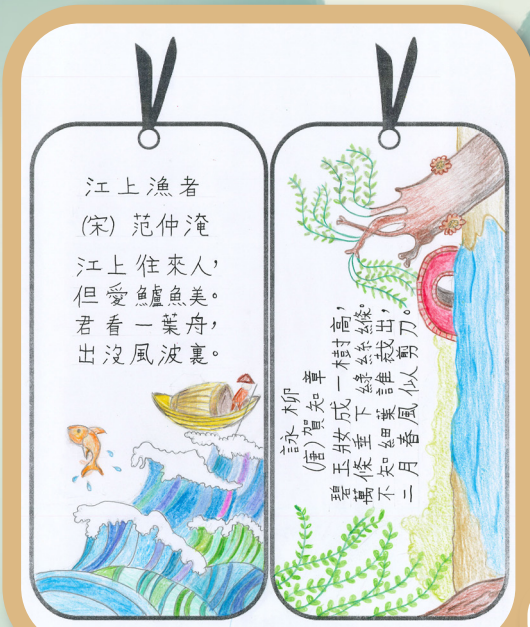 江上漁者
(宋) 范仲淹
江上往來人，
但愛鱸魚美。
君看一葉舟，
出沒風波裏。
詠柳
(唐)賀知章
碧玉妝成一樹高，
萬條垂下綠絲絛。
不知細葉誰裁出，
二月春風似剪刀。